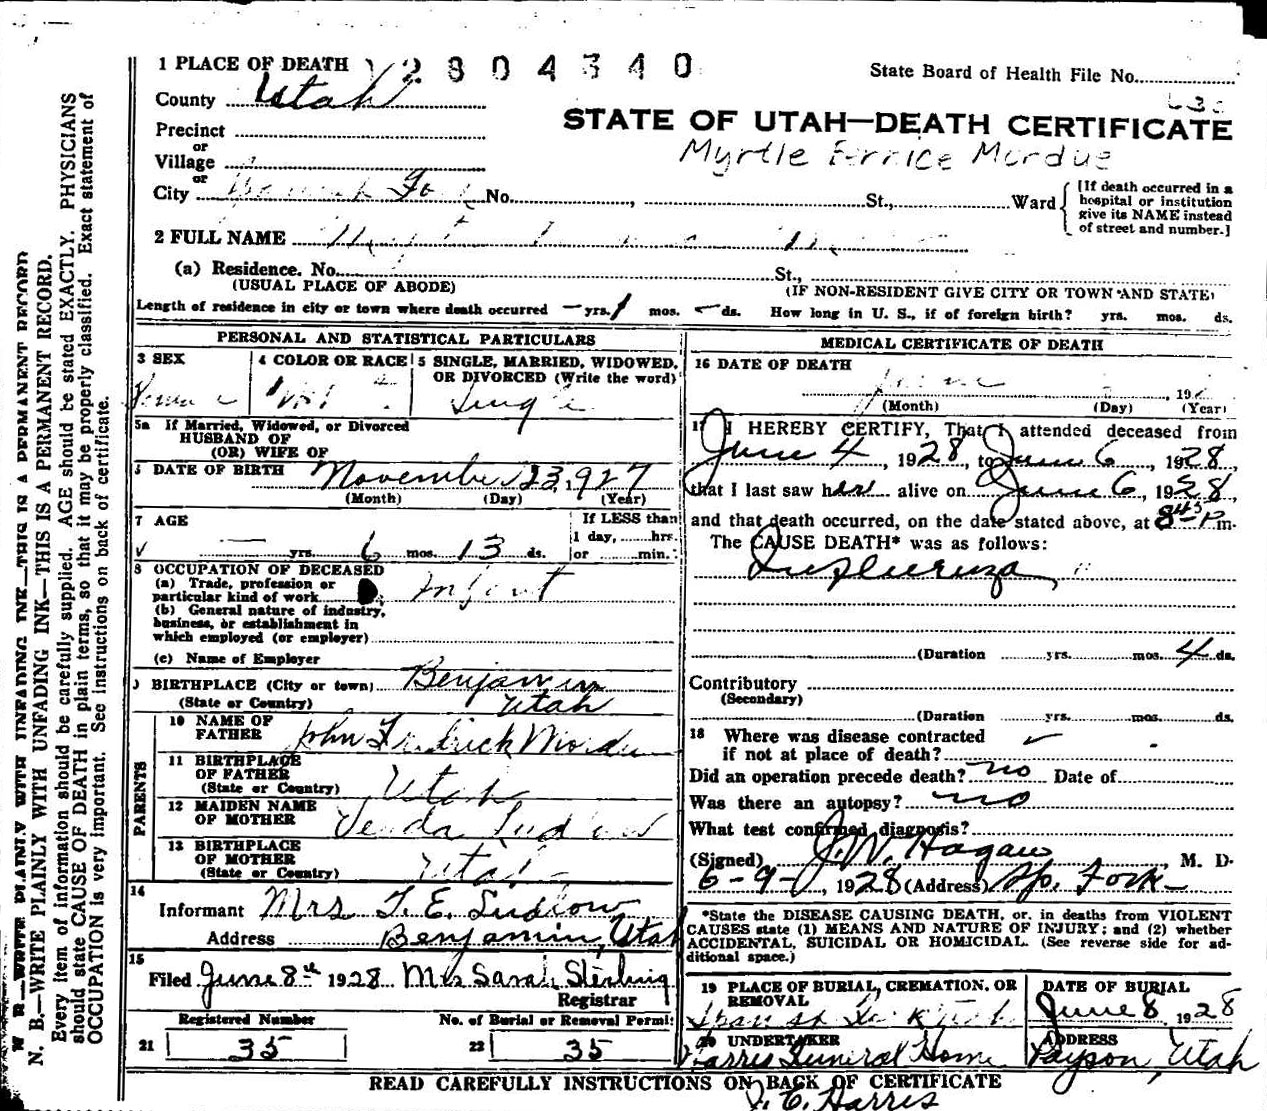 1 PLACE OF DEATH 2804340 State Board of Health File No.
County Utah
STATE OF UTAH—DEATH CERTIFICATE
Precinct
or
Myrtle Bernice Mordue
Village
or
City No. St., Ward [If death occurred in a hospital or institution give its NAME instead of street and number.]
2 FULL NAME
(a) Residence. No. St.,
(USUAL PLACE OF ABODE) (IF NON-RESIDENT GIVE CITY OR TOWN AND STATE)
Length of residence in city or town where death occurred — yrs. 1 mos. — ds. How long in U. S., if of foreign birth? yrs. mos. ds.
PERSONAL AND STATISTICAL PARTICULARS
3 SEX 4 COLOR OR RACE 5 SINGLE, MARRIED, WIDOWED, OR DIVORCED (Write the word)
Female Single
5a If Married, Widowed, or Divorced
HUSBAND OF
(OR) WIFE OF
DATE OF BIRTH November 23, 1927
(Month) (Day) (Year)
7 AGE If LESS than
1 day, hrs.
— yrs. 6 mos. 13 ds. or min.
8 OCCUPATION OF DECEASED
(a) Trade, profession or
particular kind of work Infant
(b) General nature of industry,
business, or establishment in
which employed (or employer)
(c) Name of Employer
BIRTHPLACE (City or town) Benjamin
(State or Country) Utah
PARENTS
10 NAME OF FATHER John Fredrick Mordue
11 BIRTHPLACE OF FATHER
(State or Country) Utah
12 MAIDEN NAME OF MOTHER Venda Ludlow
13 BIRTHPLACE OF MOTHER
(State or Country) Utah
14
Informant Mrs T. E. Ludlow
Address Benjamin, Utah
15
Filed June 8th 1928 Mrs Sarah Sterling
Registrar
Registered Number No. of Burial or Removal Permit
21 35 22 35
MEDICAL CERTIFICATE OF DEATH
16 DATE OF DEATH
June , 192
(Month) (Day) (Year)
17 I HEREBY CERTIFY, That I attended deceased from
June 4, 1928, to June 6, 1928,
that I last saw her alive on June 6, 1928,
and that death occurred, on the date stated above, at 8:45 P m.
The CAUSE DEATH* was as follows:
Influenza
(Duration yrs. mos. 4 ds.
Contributory
(Secondary)
(Duration yrs. mos. ds.
18 Where was disease contracted
if not at place of death?
Did an operation precede death? no Date of
Was there an autopsy? no
What test confirmed diagnosis?
(Signed) J. W. Hagan, M. D.
6-9-, 1928 (Address) Sp. Fork
*State the DISEASE CAUSING DEATH, or, in deaths from VIOLENT
CAUSES state (1) MEANS AND NATURE OF INJURY; and (2) whether
ACCIDENTAL, SUICIDAL OR HOMICIDAL. (See reverse side for ad-
ditional space.)
19 PLACE OF BURIAL, CREMATION, OR REMOVAL DATE OF BURIAL
Spanish Fork Utah June 8 1928
20 UNDERTAKER ADDRESS
Harris Funeral Home Payson, Utah
READ CAREFULLY INSTRUCTIONS ON BACK OF CERTIFICATE
J. E. Harris
N. B.—WRITE PLAINLY WITH UNFADING INK—THIS IS A PERMANENT RECORD.
Every item of information should be carefully supplied. AGE should be stated EXACTLY. PHYSICIANS
should state CAUSE OF DEATH in plain terms, so that it may be properly classified. Exact statement of
OCCUPATION is very important. See instructions on back of certificate.